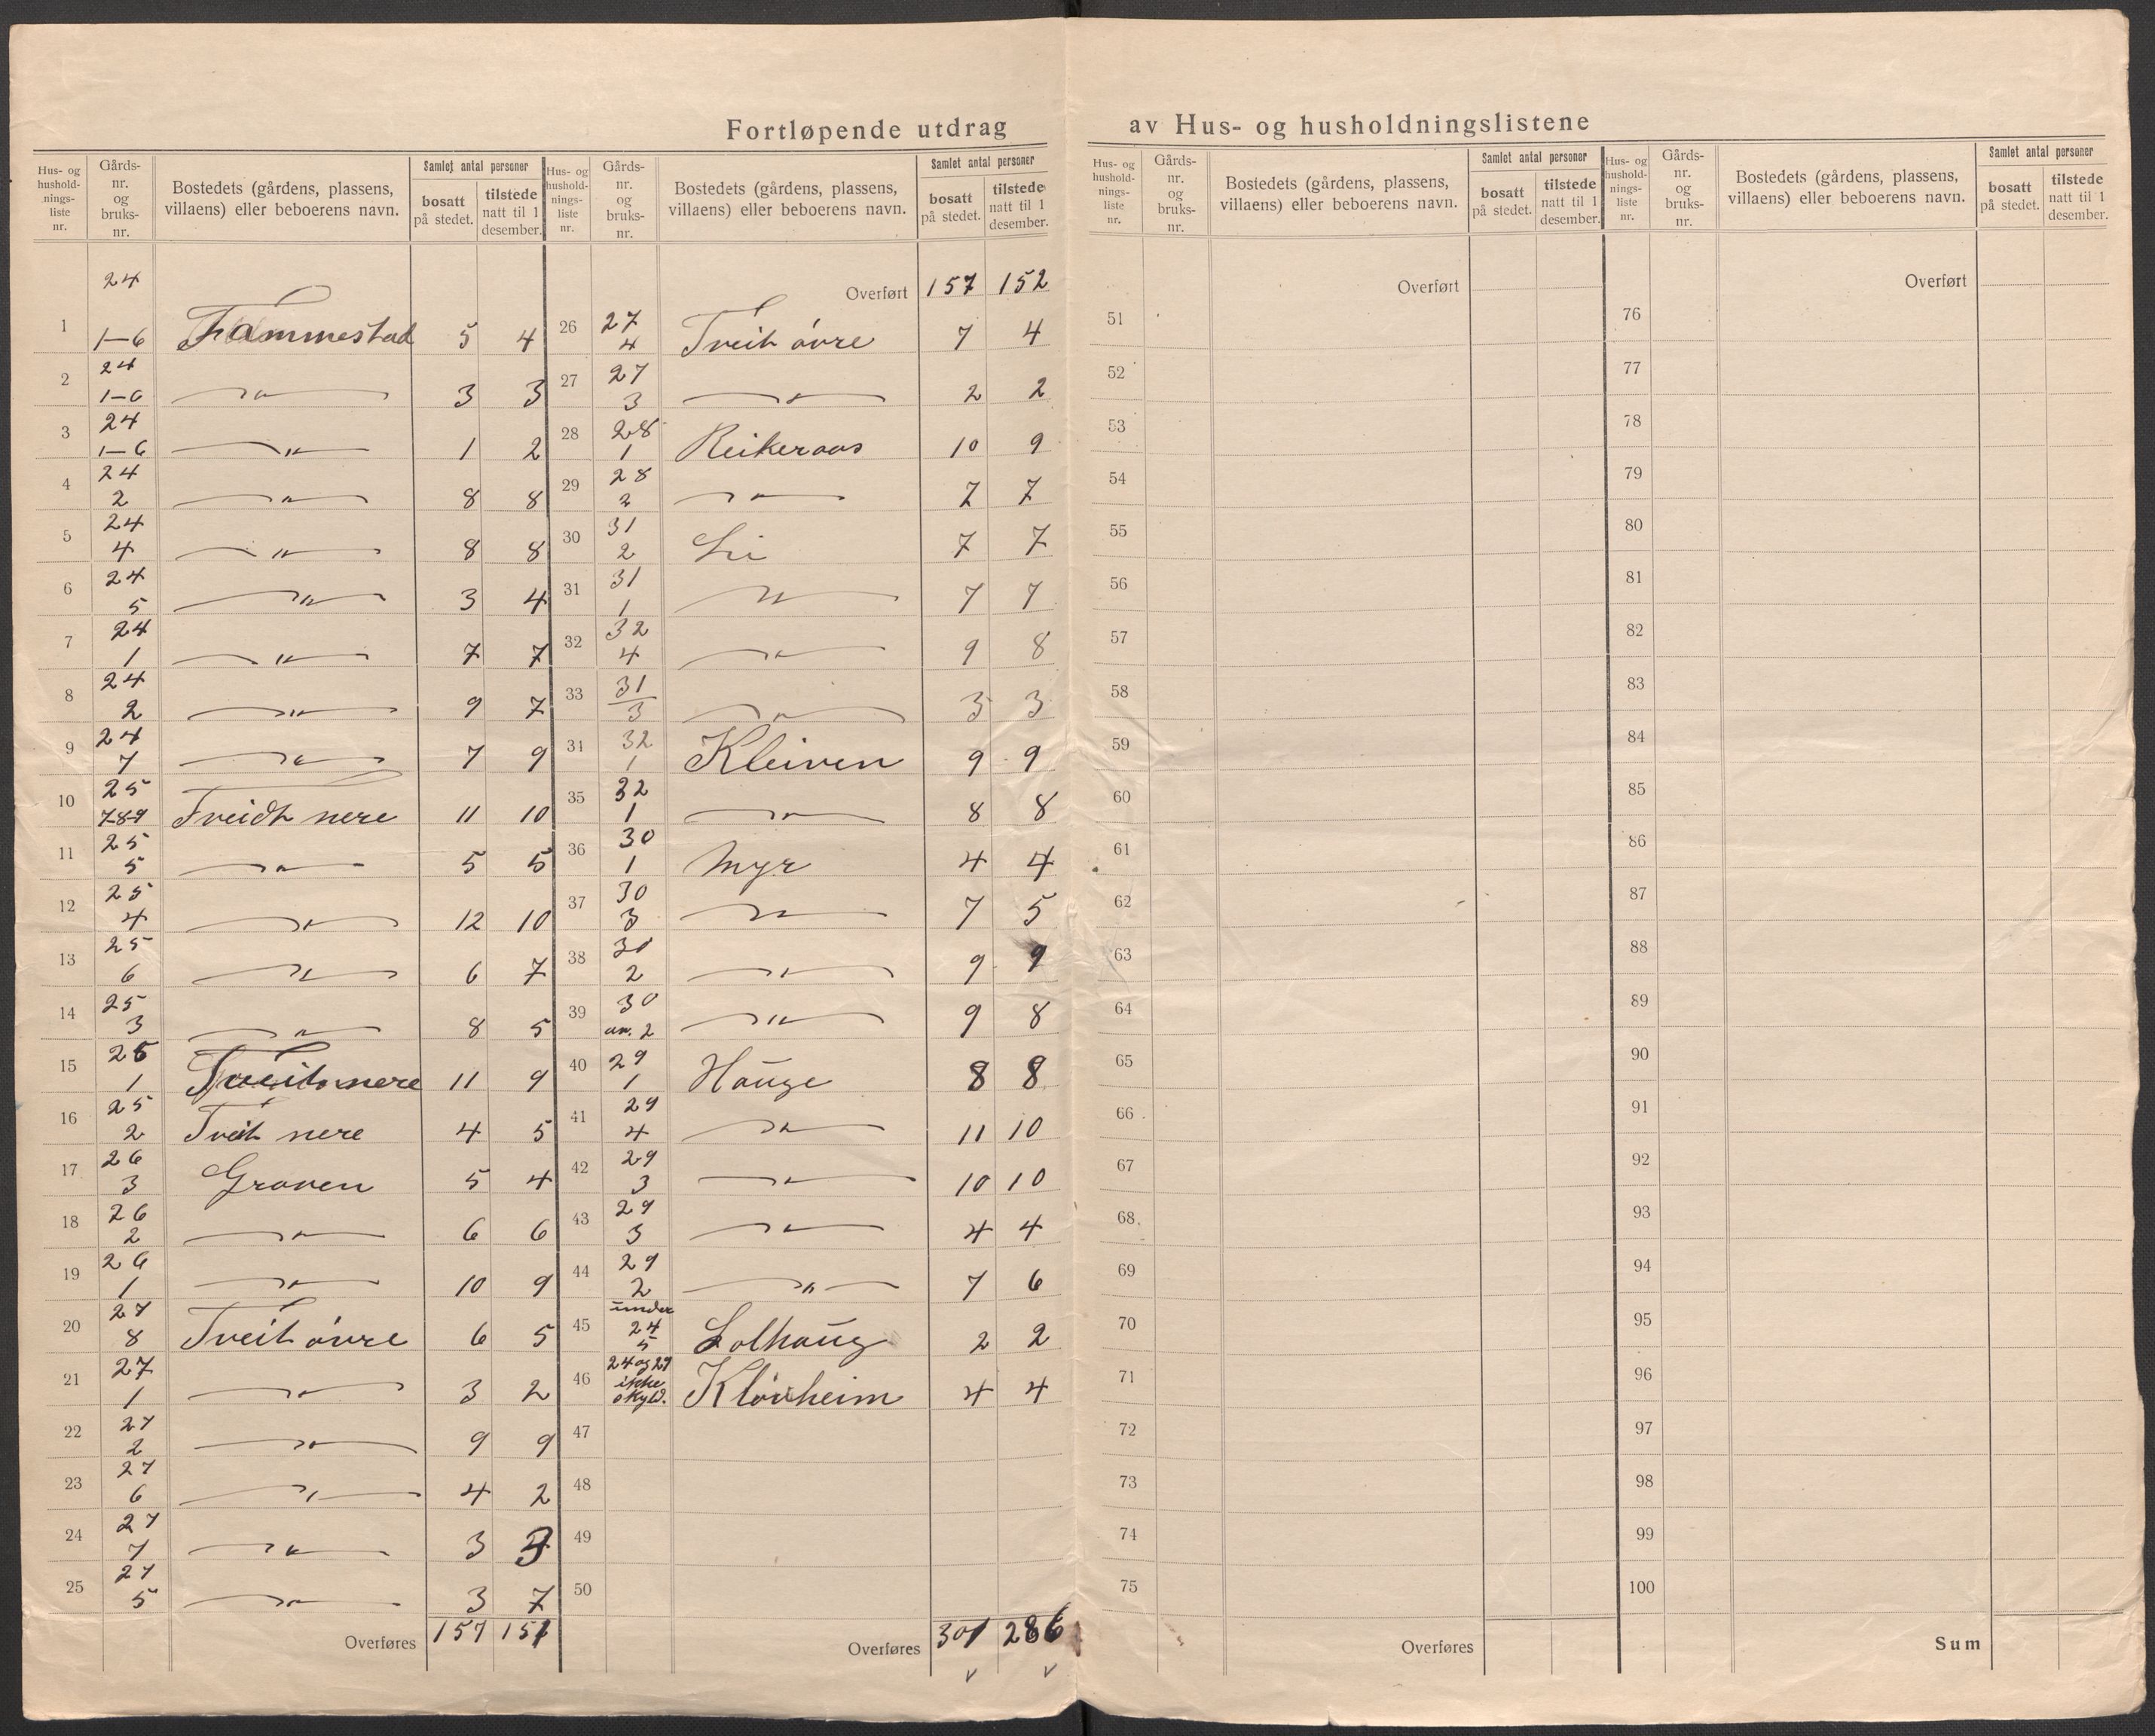 Fortløpende utdrag av Hus- og husholdningslistene
Hus- og hushold-nings-liste nr. | Gårds-nr. og bruks-nr. | Bostedets (gårdens, plassens, villaens) eller beboerens navn. | Samlet antal personer | bosatt på stedet. | tilstede natt til 1 desember.
1 | 24 1—6 | Fammestad | 5 | 4
2 | 24 1—6 | —"— | 3 | 3
3 | 24 1—6 | —"— | 1 | 2
4 | 24 2 | —"— | 8 | 8
5 | 24 4 | —"— | 8 | 8
6 | 24 5 | —"— | 3 | 4
7 | 24 1 | —"— | 7 | 7
8 | 24 2 | —"— | 9 | 7
9 | 24 7 | —"— | 7 | 9
10 | 25 7-8-9 | Tveidt nere | 11 | 10
11 | 25 5 | —"— | 5 | 5
12 | 25 4 | —"— | 12 | 10
13 | 25 6 | —"— | 6 | 7
14 | 25 3 | —"— | 8 | 5
15 | 25 1 | Tveit nere | 11 | 9
16 | 25 2 | Tveit nere | 4 | 5
17 | 26 3 | Graven | 5 | 4
18 | 26 2 | —"— | 6 | 6
19 | 26 1 | —"— | 10 | 9
20 | 27 8 | Tveit øvre | 6 | 5
21 | 27 1 | —"— | 3 | 2
22 | 27 2 | —"— | 9 | 9
23 | 27 6 | —"— | 4 | 2
24 | 27 7 | —"— | 3 | 3
25 | 27 5 | —"— | 3 | 7
Overføres | 157 | 151
Hus- og hushold-nings-liste nr. | Gårds-nr. og bruks-nr. | Bostedets (gårdens, plassens, villaens) eller beboerens navn. | Samlet antal personer | bosatt på stedet. | tilstede natt til 1 desember.
Overført | 157 | 152
26 | 27 4 | Tveit øvre | 7 | 4
27 | 27 3 | —"— | 2 | 2
28 | 28 1 | Reikeraas | 10 | 9
29 | 28 2 | —"— | 7 | 7
30 | 31 2 | Li | 7 | 7
31 | 31 1 | —"— | 7 | 7
32 | 32 4 | —"— | 9 | 8
33 | 31 3 | —"— | 3 | 3
31 | 32 1 | Kleiven | 9 | 9
35 | 32 1 | —"— | 8 | 8
36 | 30 1 | Myr | 4 | 4
37 | 30 3 | —"— | 7 | 5
38 | 30 2 | —"— | 9 | 9
39 | 30 un. 2 | —"— | 9 | 8
40 | 29 1 | Hauge | 8 | 8
41 | 29 4 | —"— | 11 | 10
42 | 29 3 | —"— | 10 | 10
43 | 29 3 | —"— | 4 | 4
44 | 29 2 | —"— | 7 | 6
45 | under 24 5 | Solhaug | 2 | 2
46 | 24 og 29 ikke skyld. | Kløvheim | 4 | 4
47
48
49
50
Overføres | 301 | 286
Hus- og hushold-nings-liste nr. | Gårds-nr. og bruks-nr. | Bostedets (gårdens, plassens, villaens) eller beboerens navn. | Samlet antal personer | bosatt på stedet. | tilstede natt til 1 desember.
Overført
51
52
53
54
55
56
57
58
59
60
61
62
63
64
65
66
67
68
69
70
71
72
73
74
75
Overføres
Hus- og hushold-nings-liste nr. | Gårds-nr. og bruks-nr. | Bostedets (gårdens, plassens, villaens) eller beboerens navn. | Samlet antal personer | bosatt på stedet. | tilstede natt til 1 desember.
Overført
76
77
78
79
80
81
82
83
84
85
86
87
88
89
90
91
92
93
94
95
96
97
98
99
100
Sum